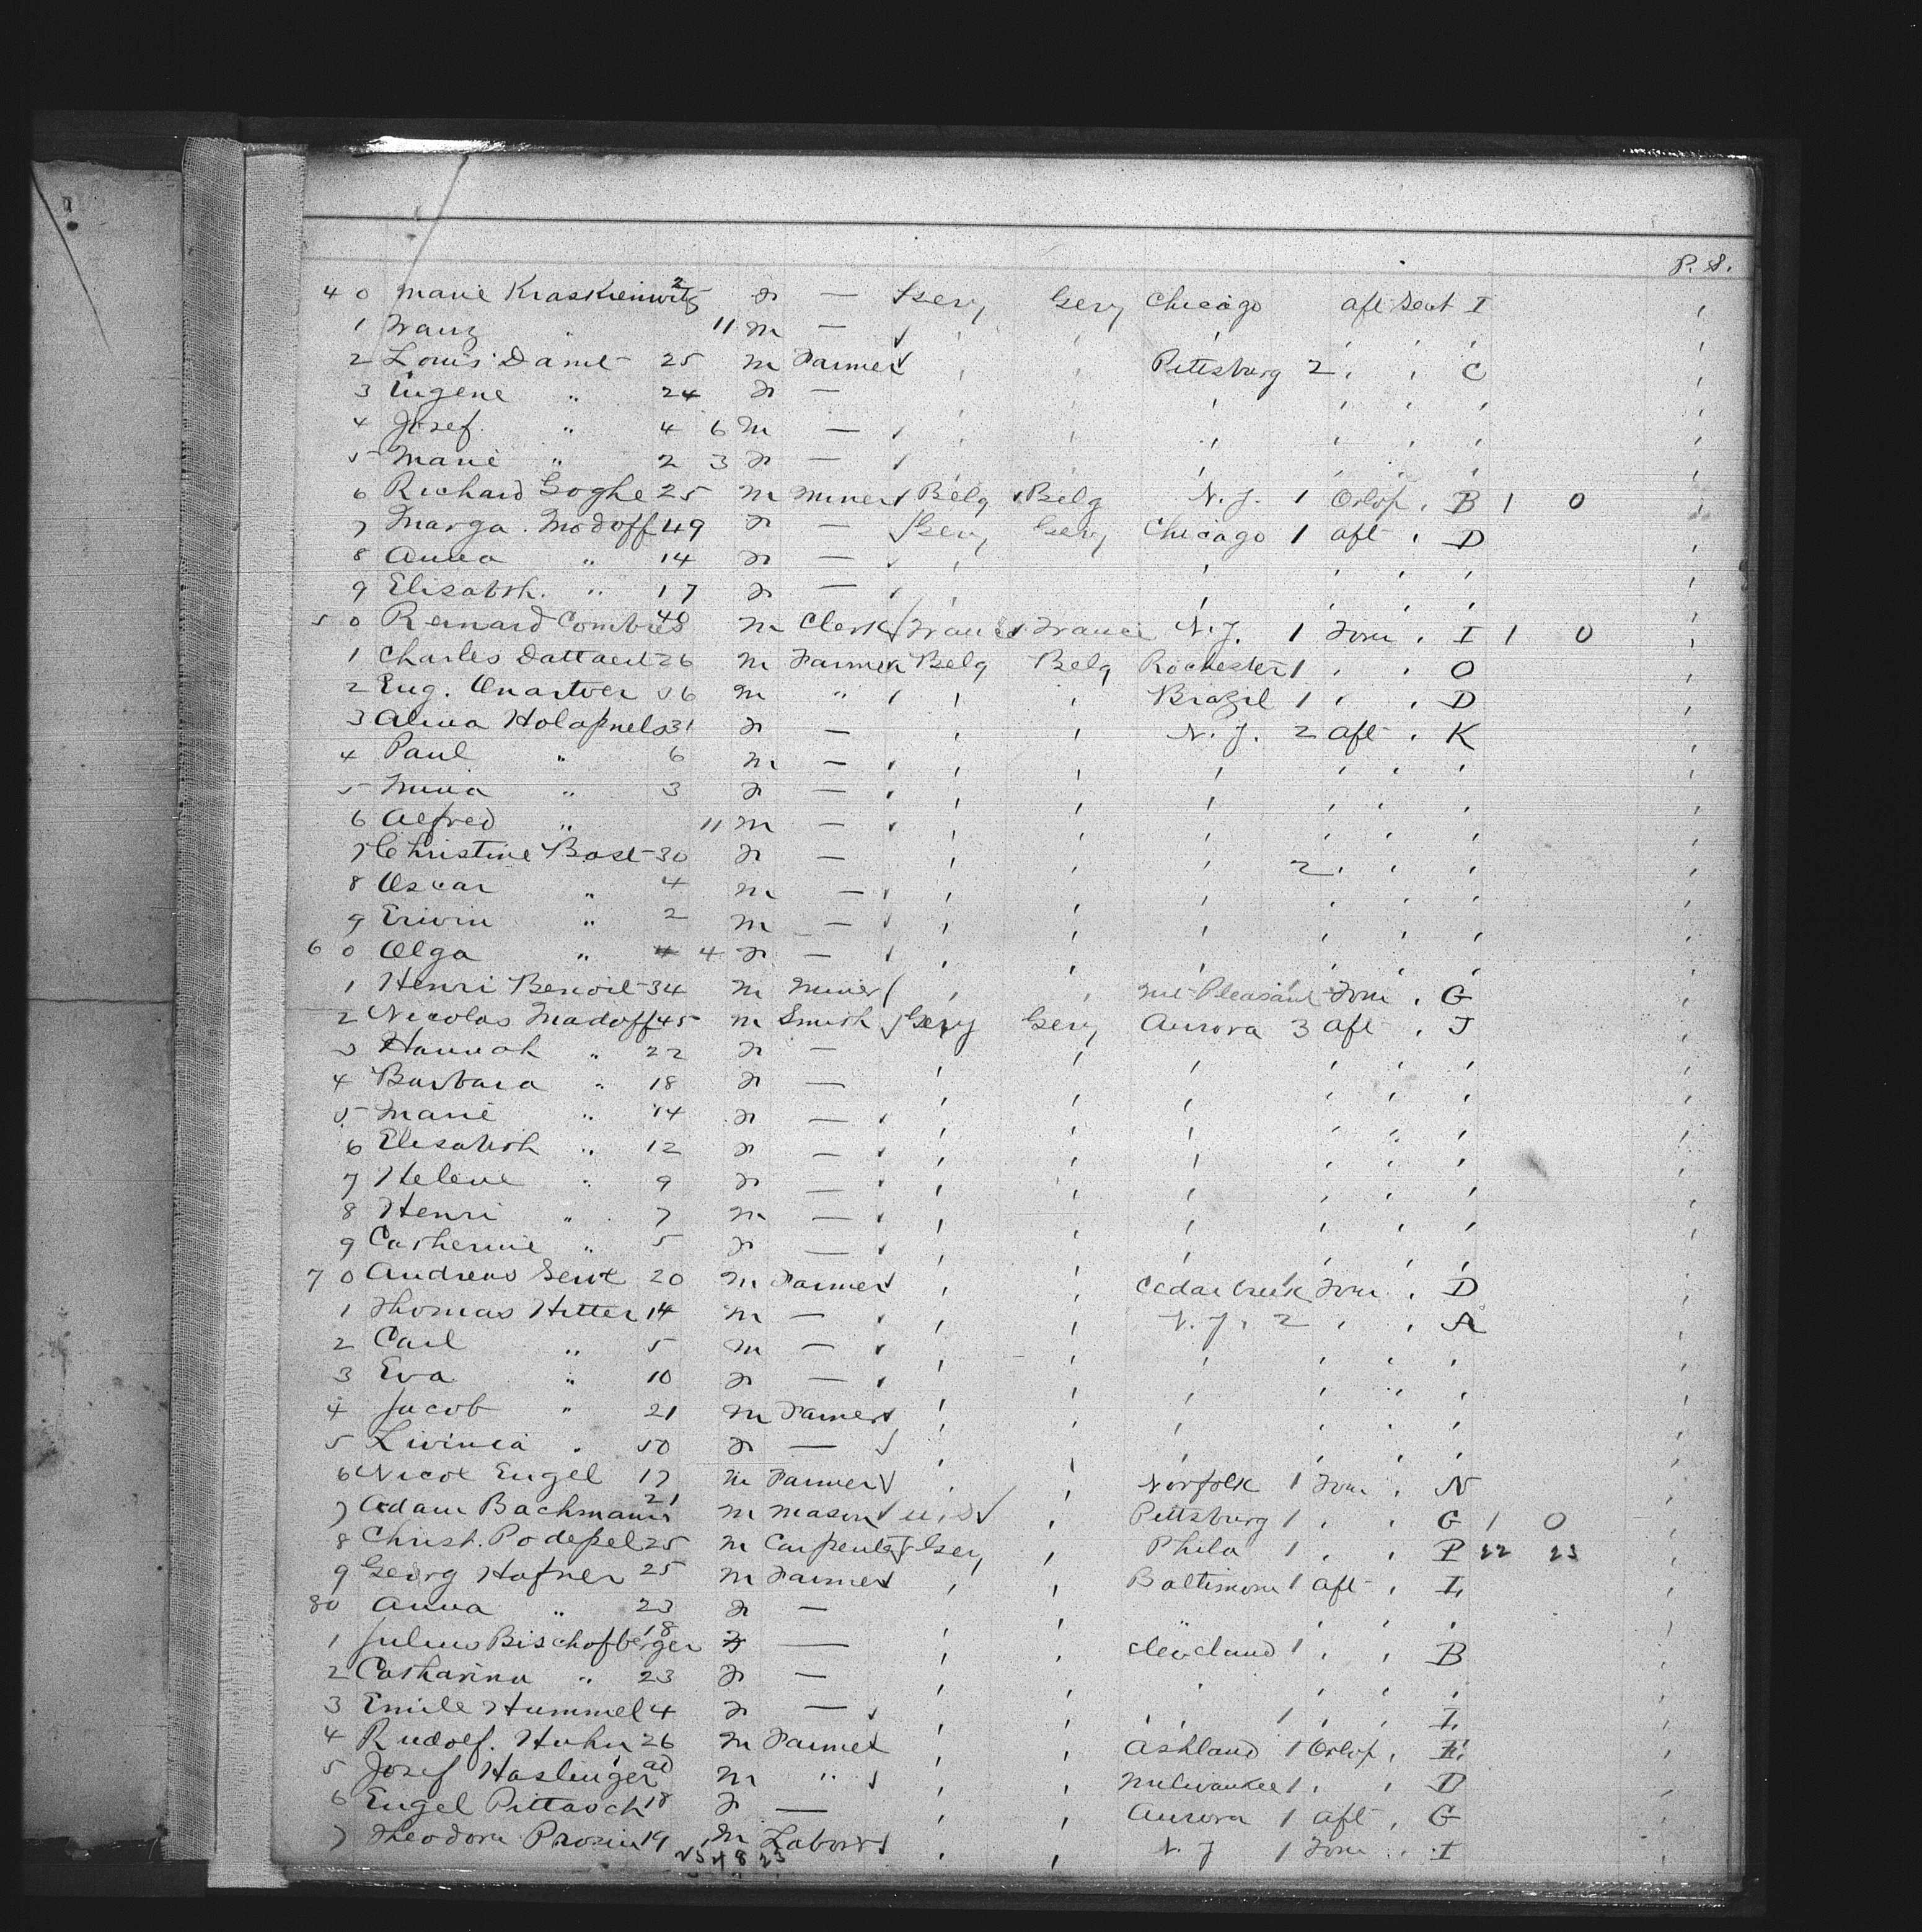 P. S.
40 Marie Kraskienwitz 2 F — Gery Gery Chicago aft Deck I '
1 Franz " 11 M — ' ' ' ' ' ' '
2 Louis Dame 25 M Farmer ' ' Pittsburg 2 ' ' C '
3 Eugene " 24 F — ' ' ' ' ' ' '
4 Josef " 4 6 M — ' ' ' ' ' ' '
5 Marie " 2 3 F — ' ' ' ' ' ' '
6 Richard Goghe 25 M Miner Belg Belg N.J. 1 Orlop ' B 1 0 '
7 Marga. Modoff 49 F — Gery Gery Chicago 1 aft ' D '
8 Anna " 14 F — ' ' ' ' ' ' '
9 Elisabth. " 17 F — ' ' ' ' ' ' '
50 Bernard Combres 40 M Clerk France France N.J. 1 Forw ' I 1 0 '
1 Charles Dattaert 26 M Farmer Belg Belg Rochester 1 ' ' O '
2 Eug. Quartver 56 M " ' ' Brazil 1 ' ' D '
3 Alina Holapnels 31 F — ' ' N.J. 2 aft ' K '
4 Paul " 6 M — ' ' ' ' ' ' '
5 Mina " 3 F — ' ' ' ' ' ' '
6 Alfred " 11 M — ' ' ' ' ' ' '
7 Christine Bast 30 F — ' ' ' 2 ' ' ' '
8 Oscar " 4 M — ' ' ' ' ' ' '
9 Erivin " 2 M — ' ' ' ' ' ' '
60 Olga " 4 F — ' ' ' ' ' ' '
1 Henri Benoit 34 M Miner ' ' Mt Pleasant Forw ' G '
2 Nicolas Madoff 45 M Smith Gery Gery Aurora 3 aft ' J '
3 Hannah " 22 F — ' ' ' ' ' ' '
4 Barbara " 18 F — ' ' ' ' ' ' '
5 Marie " 14 F — ' ' ' ' ' ' '
6 Elisabth " 12 F — ' ' ' ' ' ' '
7 Helene " 9 F — ' ' ' ' ' ' '
8 Henri " 7 M — ' ' ' ' ' ' '
9 Catherine " 5 F — ' ' ' ' ' ' '
70 Andreas Gent 20 M Farmer ' ' Cedar Creek Forw ' D '
1 Thomas Hitter 14 M — ' ' N.J. 2 ' ' A '
2 Carl " 5 M — ' ' ' ' ' ' '
3 Eva " 10 F — ' ' ' ' ' ' '
4 Jacob " 21 M Farmer ' ' ' ' ' ' '
5 Livinia " 50 F — ' ' ' ' ' ' '
6 Nicol Engel 17 M Farmer ' ' Norfolk 1 Forw ' N '
7 Adam Bachmann 21 M Mason U.S. ' Pittsburg 1 ' ' G 1 0 '
8 Christ. Podepel 25 M Carpenter Gery ' Phila 1 ' ' P 22 23 '
9 Georg Hafner 25 M Farmer ' ' Baltimore 1 aft ' L '
80 Anna " 23 F — ' ' " ' ' ' '
1 Julius Bischofberger 18 F — ' ' Cleveland 1 ' ' B '
2 Catharina " 23 F — ' ' ' ' ' ' '
3 Emile Hummel 4 F — ' ' ' ' 1 ' ' I '
4 Rudolf. Huhn 26 M Farmer ' ' Ashland 1 Orlop ' E '
5 Josef Haslinger ad M " ' ' Milwaukee 1 ' ' D '
6 Engel Pittasch 18 F — ' ' Aurora 1 aft ' G '
7 Theodore Prosin 19 M Laborer ' ' N.J 1 Forw ' I '